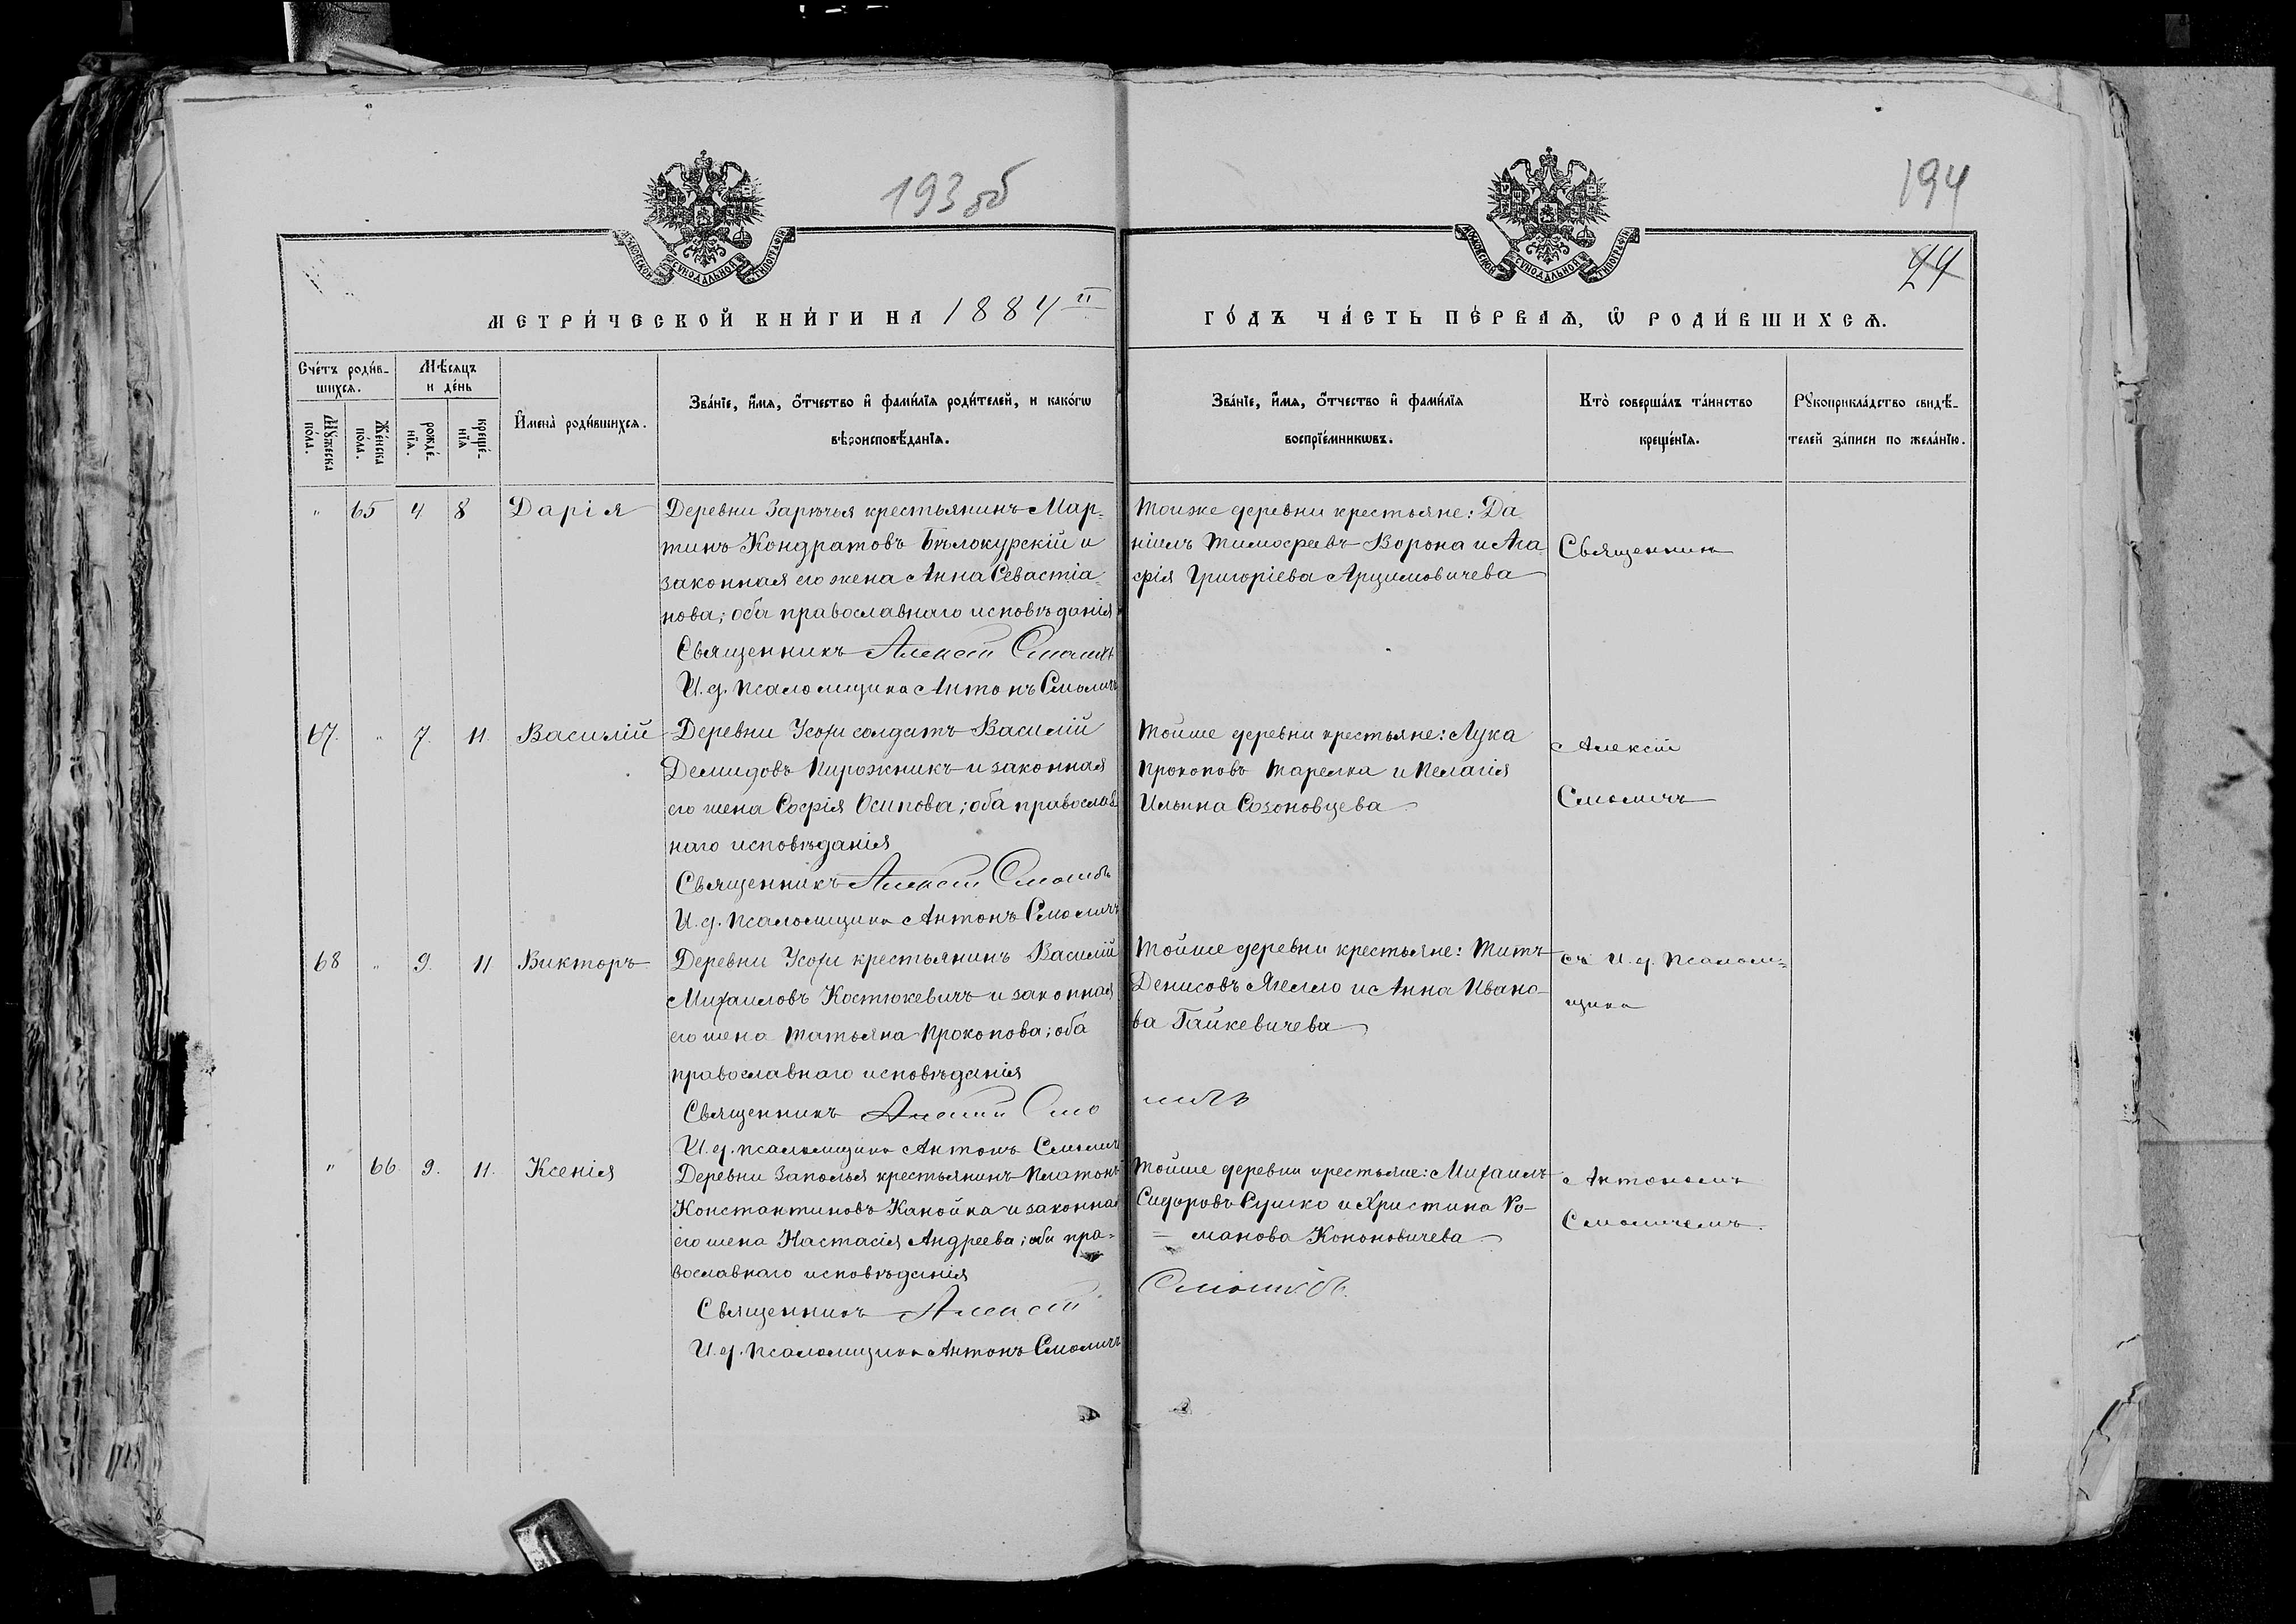 193 об
194
24
МОСКОВСКОЙ СѴНОДАЛЬНОЙ ТИПОГРАФІИ
МОСКОВСКОЙ СѴНОДАЛЬНОЙ ТИПОГРАФІИ
МЕТРИ́ЧЕСКОЙ КНИ́ГИ НА 1884й
ГО́ДЪ ЧА́СТЬ ПЕ́РВАѦ, Ѡ҆ РОДИ́ВШИХСѦ.
Сче́тъ роди́в-
шихсѧ.
Мѣ́сяцъ
и де́нь
Мꙋ́жеска
по́ла.
Же́нска
по́ла.
рожде́-
нїѧ.
креще́-
нїѧ
И҆мена̀ роди́вшихсѧ.
Зва́нїе, и҆́мѧ, ѻ҆́тчество и҆ фами́лїѧ роди́телей, и како́гѡ
вѣроисповѣ́данїѧ.
Зва́нїе, и҆́мѧ, ѻ҆́тчество и҆ фами́лїѧ
воспрїе́мникѡвъ.
Кто̀ соверша́лъ та́инство
креще́нїѧ.
Рꙋкоприкла́дство свидѣ́-
телей за́писи по жела́нїю.
" 65 4 8 Дарія
Деревни Зарѣчья крестьянинъ Мар-
тинъ Кондратовъ Бѣлокурскій и
законная его жена Анна Севастіа-
нова; оба православнаго исповѣданія
Священникъ Алексій Смоличъ
И. д. псаломщика Антонъ Смоличъ
Тоиже деревни крестьяне: Да
ніилъ Тимофеевъ Ворона и Ага
фія Григоріева Арцимовичева
Священник
67. " 7. 11. Василій
Деревни Усохи солдатъ Василій
Демидовъ Пирожникъ и законная
его жена Софія Осипова; оба православ
наго исповѣданія
Священникъ Алексій Смоличъ
И. д. псаломщика Антонъ Смоличъ
Тойше деревни крестьяне: Лука
Прокоповъ Тарелка и Пелагія
Ильина Созоновцева
Алексій
Смоличъ
68 " 9. 11 Викторъ
Деревни Усохи крестьянинъ Василій
Михаиловъ Костюкевичъ и законная
его жена Татьяна Прокопова; оба
православнаго исповѣданія
Священникъ Алексій Смо
личъ
И. д. псаломщика Антонъ Смоличъ
Тойше деревни крестьяне: Титъ
Денисовъ Ягелло и Анна Ивано-
ва Гайкевичева
съ и. д. псалом-
щика
" 66 9. 11. Ксенія
Деревни Заполья крестьянинъ Платонъ
Константиновъ Канойка и законная
его жена Настасія Андреева; оба пра-
вославнаго исповѣданія
Священникъ Алексій
Смоличъ.
И. д. псаломщика Антонъ Смоличъ
Тойше деревни крестьяне: Михаилъ
Сидоровъ Рушко и Христина Ро-
= манова Кононовичева
Антономъ
Смоличемъ.